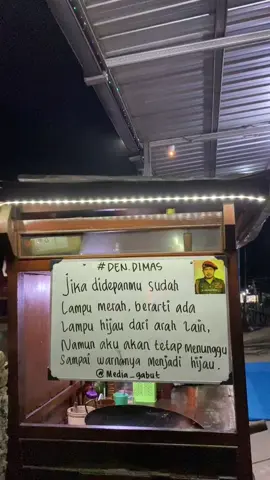 #DEN.DIMAS
Jika didepanmu sudah
Lampu merah, berarti ada
Lampu hijau dari arah Lain,
Namun aku akan tetap menunggu
Sampai warnanya menjadi hijau.
@Media_gabut